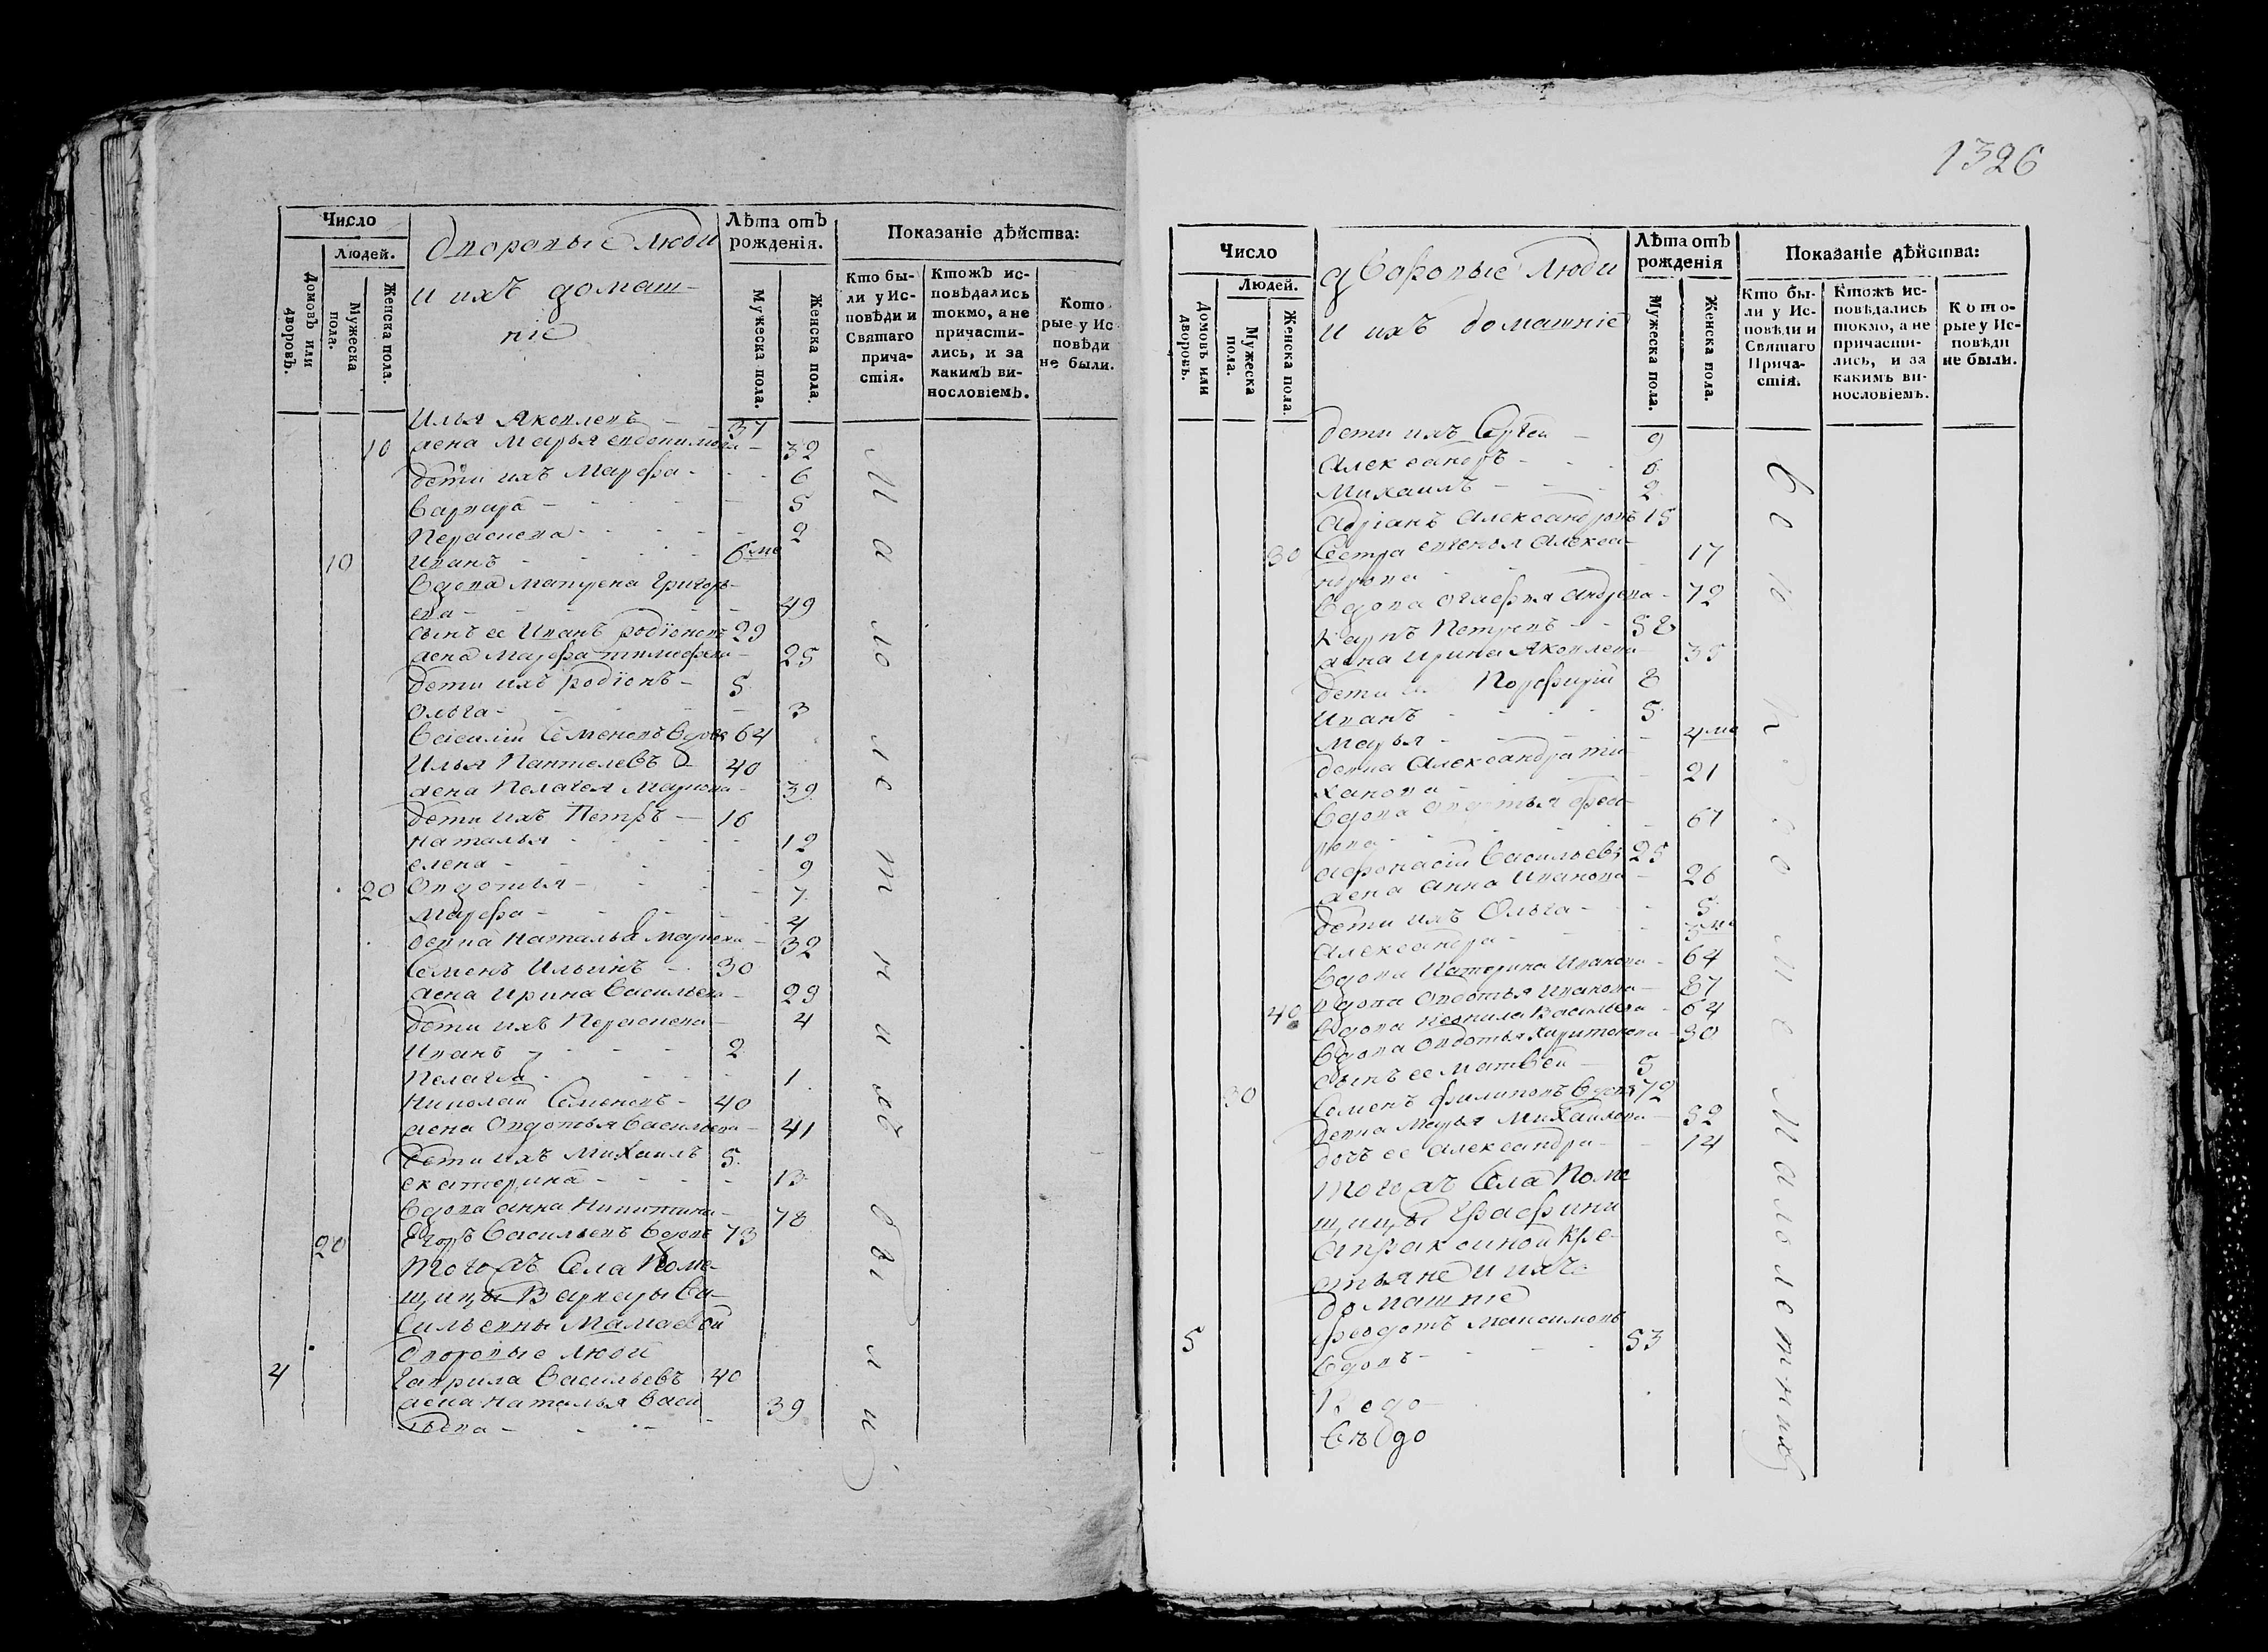 Число
Людей.
Домовъ или дворовъ.
Мужеска пола.
Женска пола.
Дворовые люди
и ихъ домаш-
ніе
Лѣта отъ
рожденія.
Мужеска пола.
Женска пола.
Показаніе дѣйства:
Кто бы-
ли у Ис-
повѣди и
Святаго
прича-
стія.
Ктожъ ис-
повѣдались
токмо, а не
причасти-
лись, и за
какимъ ви-
нословіемъ.
Кото
рые у Ис
повѣди
не были.
Илья Яковлевъ 37
10 жена Марья 32
дети ихъ Марфа - 6
Варвара - 5
Парасковa - 2
10 Иванъ - 6 ме
Вдова Матрена Григорь-
ева - 49
сынъ ее Иванъ родіоновъ 29
жена Марфа тимофева - 25
дети ихъ родіонъ - 5
Ольга - 3
Василій Семеновъ вдовъ 64
Илья Пантелевъ 40
жена Пелагея Маркова - 39
дети ихъ Петръ - 16
Наталья - 12
елена - 9
20 Овдотья - 7
Марфа - 4
девка Наталья 32
Семенъ Ильинъ - 30
жена Ирина Васильева - 29
дети ихъ Парасковa 4
Иванъ - 2
Пелагея 1
Николай Семеновъ - 40
жена Овдотья Васильева - 41
дети ихъ Михаилъ 5
екатерина - 13
Вдова анна Никитина - 78
20 Егоръ Васильевъ Вдовъ 73
Того жъ Села Поме-
щицы Варвары Ва-
сильевны Мамаевой
Дворовые люди
4 Гаврила Васильевъ 40
жена Наталья Васи
льева - 39
Малолетнихъ
были
1326
Число
Людей.
Домовъ или дворовъ.
Мужеска пола.
Женска пола.
Дворовые Люди
и ихъ домашніе
Лѣта отъ
рожденія
Мужеска пола.
Женска пола.
Показаніе дѣйства:
Кто бы-
ли у Ис-
повѣди и
Святаго
Прича-
стія.
Ктожъ ис-
повѣдались
токмо, а не
причасти-
лись, и за
какимъ ви-
нословіемъ.
Кото-
рые у Ис-
повѣди
не были.
дети ихъ Сергей - 9
Александръ - 6
Михаилъ - 2
Адріанъ Александровъ 15
30 Сестра евгенья Алекса-
ндрова - 17
Вдова Агафья Андрева - 72
Карпъ Петровъ - 58
жена Ирина Яковлева 35
дети Порфирій 8
Иванъ - 5
Марья - 4 ме
девка Александра ти-
ханова - 21
Вдова Овдотья
67
Афонасій Васильевъ 25
жена анна Иванова - 26
дети ихъ Ольга - 5
Александра -
Вдова Катерина Иванова - 64
Вдова Овдотья Иванова - 87
40 Вдова Неонила Васильева - 64
Вдова Овдотья Харитонова - 30
сынъ ее Матвей - 5
30 Семенъ Филиповъ Вдовъ 72
девка Марья Михаилова - 52
дочь ее Александра - 14
Того жъ Села Поме
щицы Графини
Апраксиной Кре-
стьяне и ихъ
домашніе
5 Феодотъ Максимовъ
Вдовъ - 53
Малолетнихъ